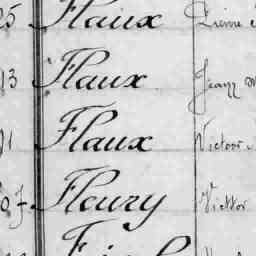 25 Flaux Pierre
13 Flaux Jean
91 Flaux Victoor
07 Fleury Victor